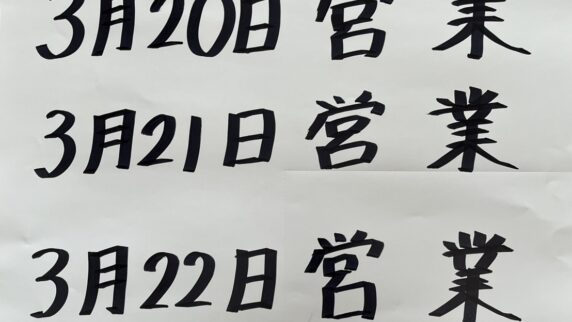 3月20日 営業
3月21日 営業
3月22日 営業